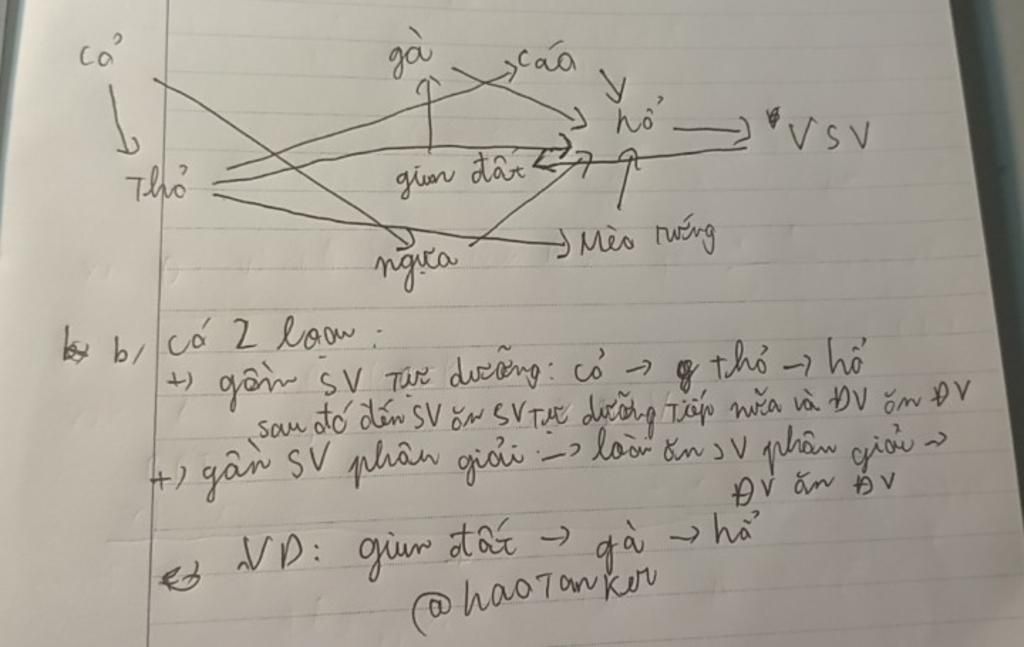 cỏ
gà
cáo
hổ
VSV
Thỏ
giun đất
ngựa
Mèo rừng
b, có 2 loại:
+) gồm SV tự dưỡng: cỏ → thỏ → hổ
sau đó đến SV ăn SV tự dưỡng tiếp nữa và ĐV ăn ĐV
+) gồm SV phân giải → loài ăn SV phân giải →
ĐV ăn ĐV
VD: giun đất → gà → hổ
@haoTanker